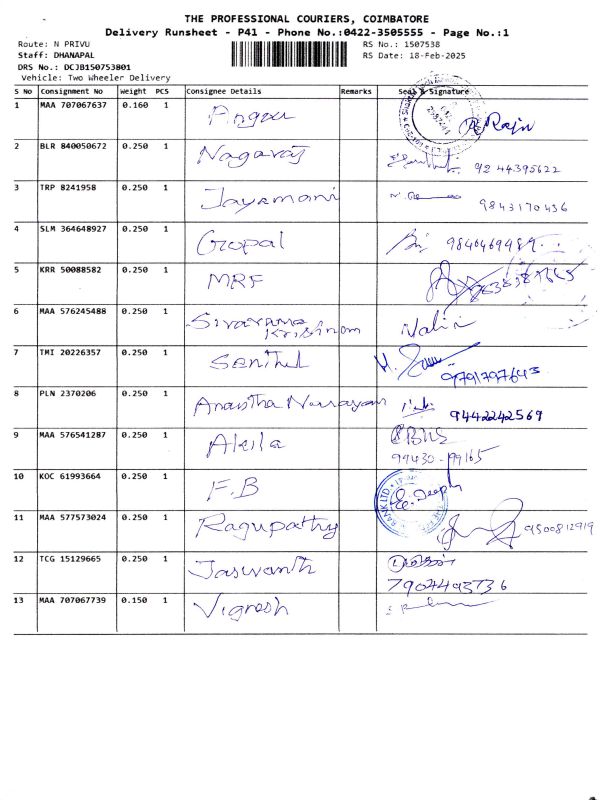 THE PROFESSIONAL COURIERS, COIMBATORE
Delivery Runsheet - P41 - Phone No.:0422-3505555 - Page No.:1
Route: N PRIVU RS No.: 1507538
Staff: DHANAPAL RS Date: 18-Feb-2025
DRS No.: DCJB150753801
Vehicle: Two Wheeler Delivery
S No Consignment No Weight PCS Consignee Details Remarks Seal & Signature
1 MAA 707067637 0.160 1 Raju
2 BLR 840050672 0.250 1 Nagaraj 92 44395622
3 TRP 8241958 0.250 1 Jayamani 9843170436
4 SLM 364648927 0.250 1 Gopal
5 KRR 50088582 0.250 1 MRF
6 MAA 576245488 0.250 1 Sivarama Krishnan Nalin
7 TMI 20226357 0.250 1 Senthil 9791797643
8 PLN 2370206 0.250 1 Anantha Narayanan 9442242569
9 MAA 576541287 0.250 1 Akila 99430-99165
10 KOC 61993664 0.250 1 F.B Deeph
11 MAA 577573024 0.250 1 Ragupathy 9500812919
12 TCG 15129665 0.250 1 Jaswanth
7904493736
13 MAA 707067739 0.150 1 Vignesh